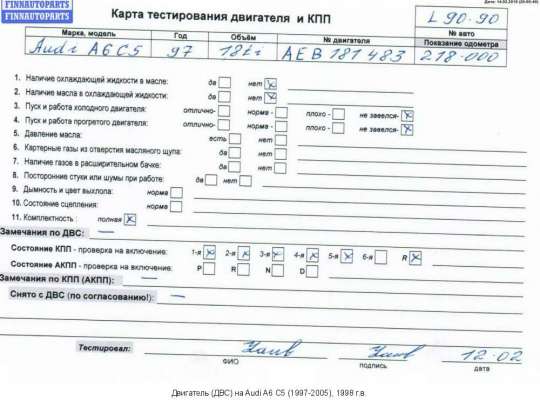 FINNAUTOPARTS
FINNAUTOPARTS
Карта тестирования двигателя и КПП
L 90-90
Марка, модель Год Объём № двигателя № авто
Показание одометра
Audi A6 C5 97 1.8i AEB 181483 218.000
1. Наличие охлаждающей жидкости в масле: да нет x
2. Наличие масла в охлаждающей жидкости: да нет x
3. Пуск и работа холодного двигателя: отлично- норма - плохо - не завелся- x
4. Пуск и работа прогретого двигателя: отлично- норма - плохо - не завелся- x
5. Давление масла: есть нет
6. Картерные газы из отверстия масляного щупа: да нет
7. Наличие газов в расширительном бачке: да нет
8. Посторонние стуки или шумы при работе: да нет
9. Дымность и цвет выхлопа: норма
10. Состояние сцепления: норма
11. Комплектность : полная x
Замечания по ДВС: —
Состояние КПП - проверка на включение: 1-я x 2-я x 3-я x 4-я x 5-я x 6-я R x
Состояние АКПП - проверка на включение: P R N D
Замечания по КПП (АКПП): —
Снято с ДВС (по согласованию!): —
Тестировал: 12.02
ФИО подпись дата
Двигатель (ДВС) на Audi A6 C5 (1997-2005), 1998 г.в.